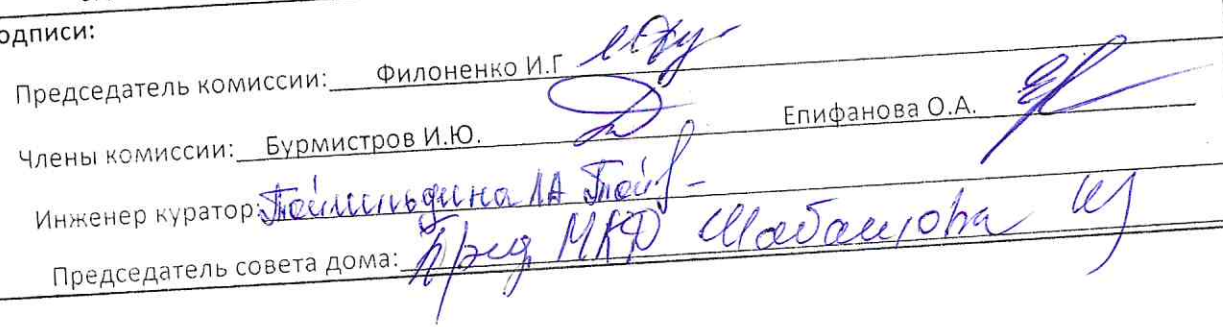 одписи:
Председатель комиссии: Филоненко И.Г
Члены комиссии: Бурмистров И.Ю. Епифанова О.А.
Инженер куратор: ЛА
Председатель совета дома: МКД